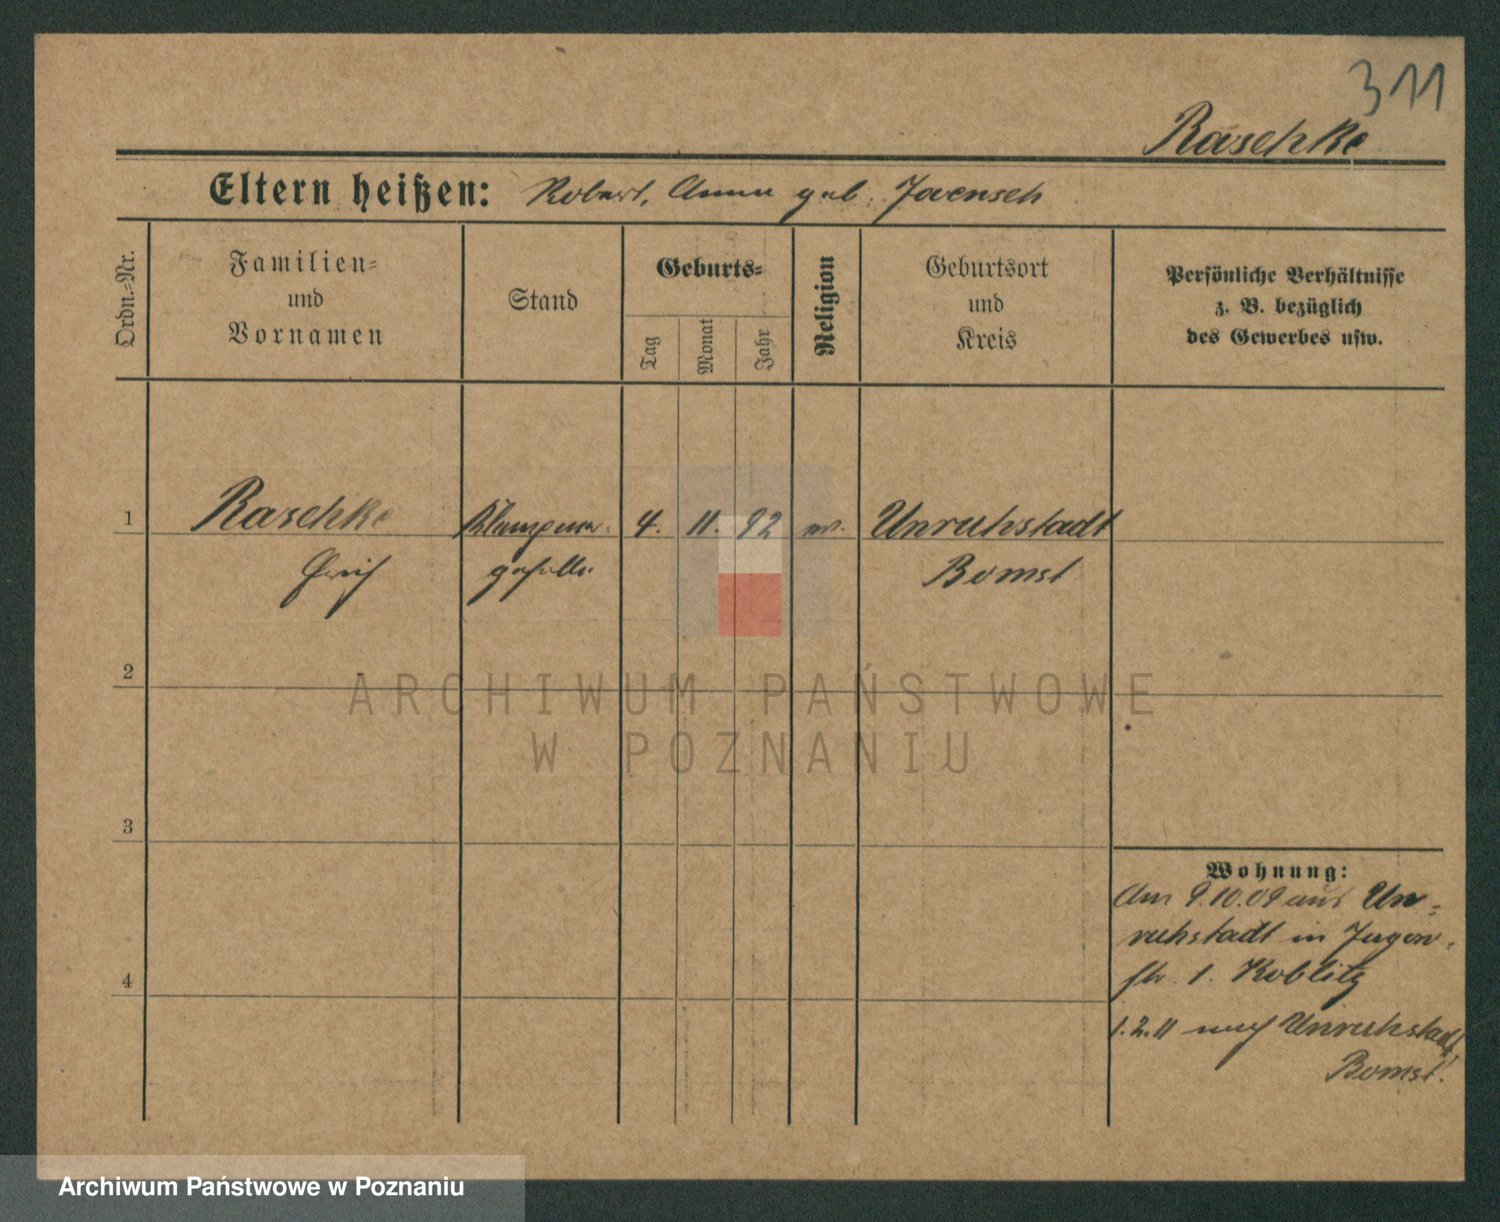 311
Raschke
Eltern heißen: Robert, Anna geb. Jaensch
Ordn.=Nr.
Familien=
und
Vornamen
Stand
Geburts=
Tag
Monat
Jahr
Religion
Geburtsort
und
Kreis
Persönliche Verhältnisse
z. B. bezüglich
des Gewerbes usw.
1
Raschke
Erich
Klempner=
geselle
4. 11. 92
ev.
Unruhstadt
Bomst
2
ARCHIWUM PAŃSTWOWE
W POZNANIU
3
Wohnung:
Am 9.10.09 aus Un=
ruhstadt in
str. 1. Koblitz
4
1.2.11 nach Unruhstadt
Bomst.
Archiwum Państwowe w Poznaniu